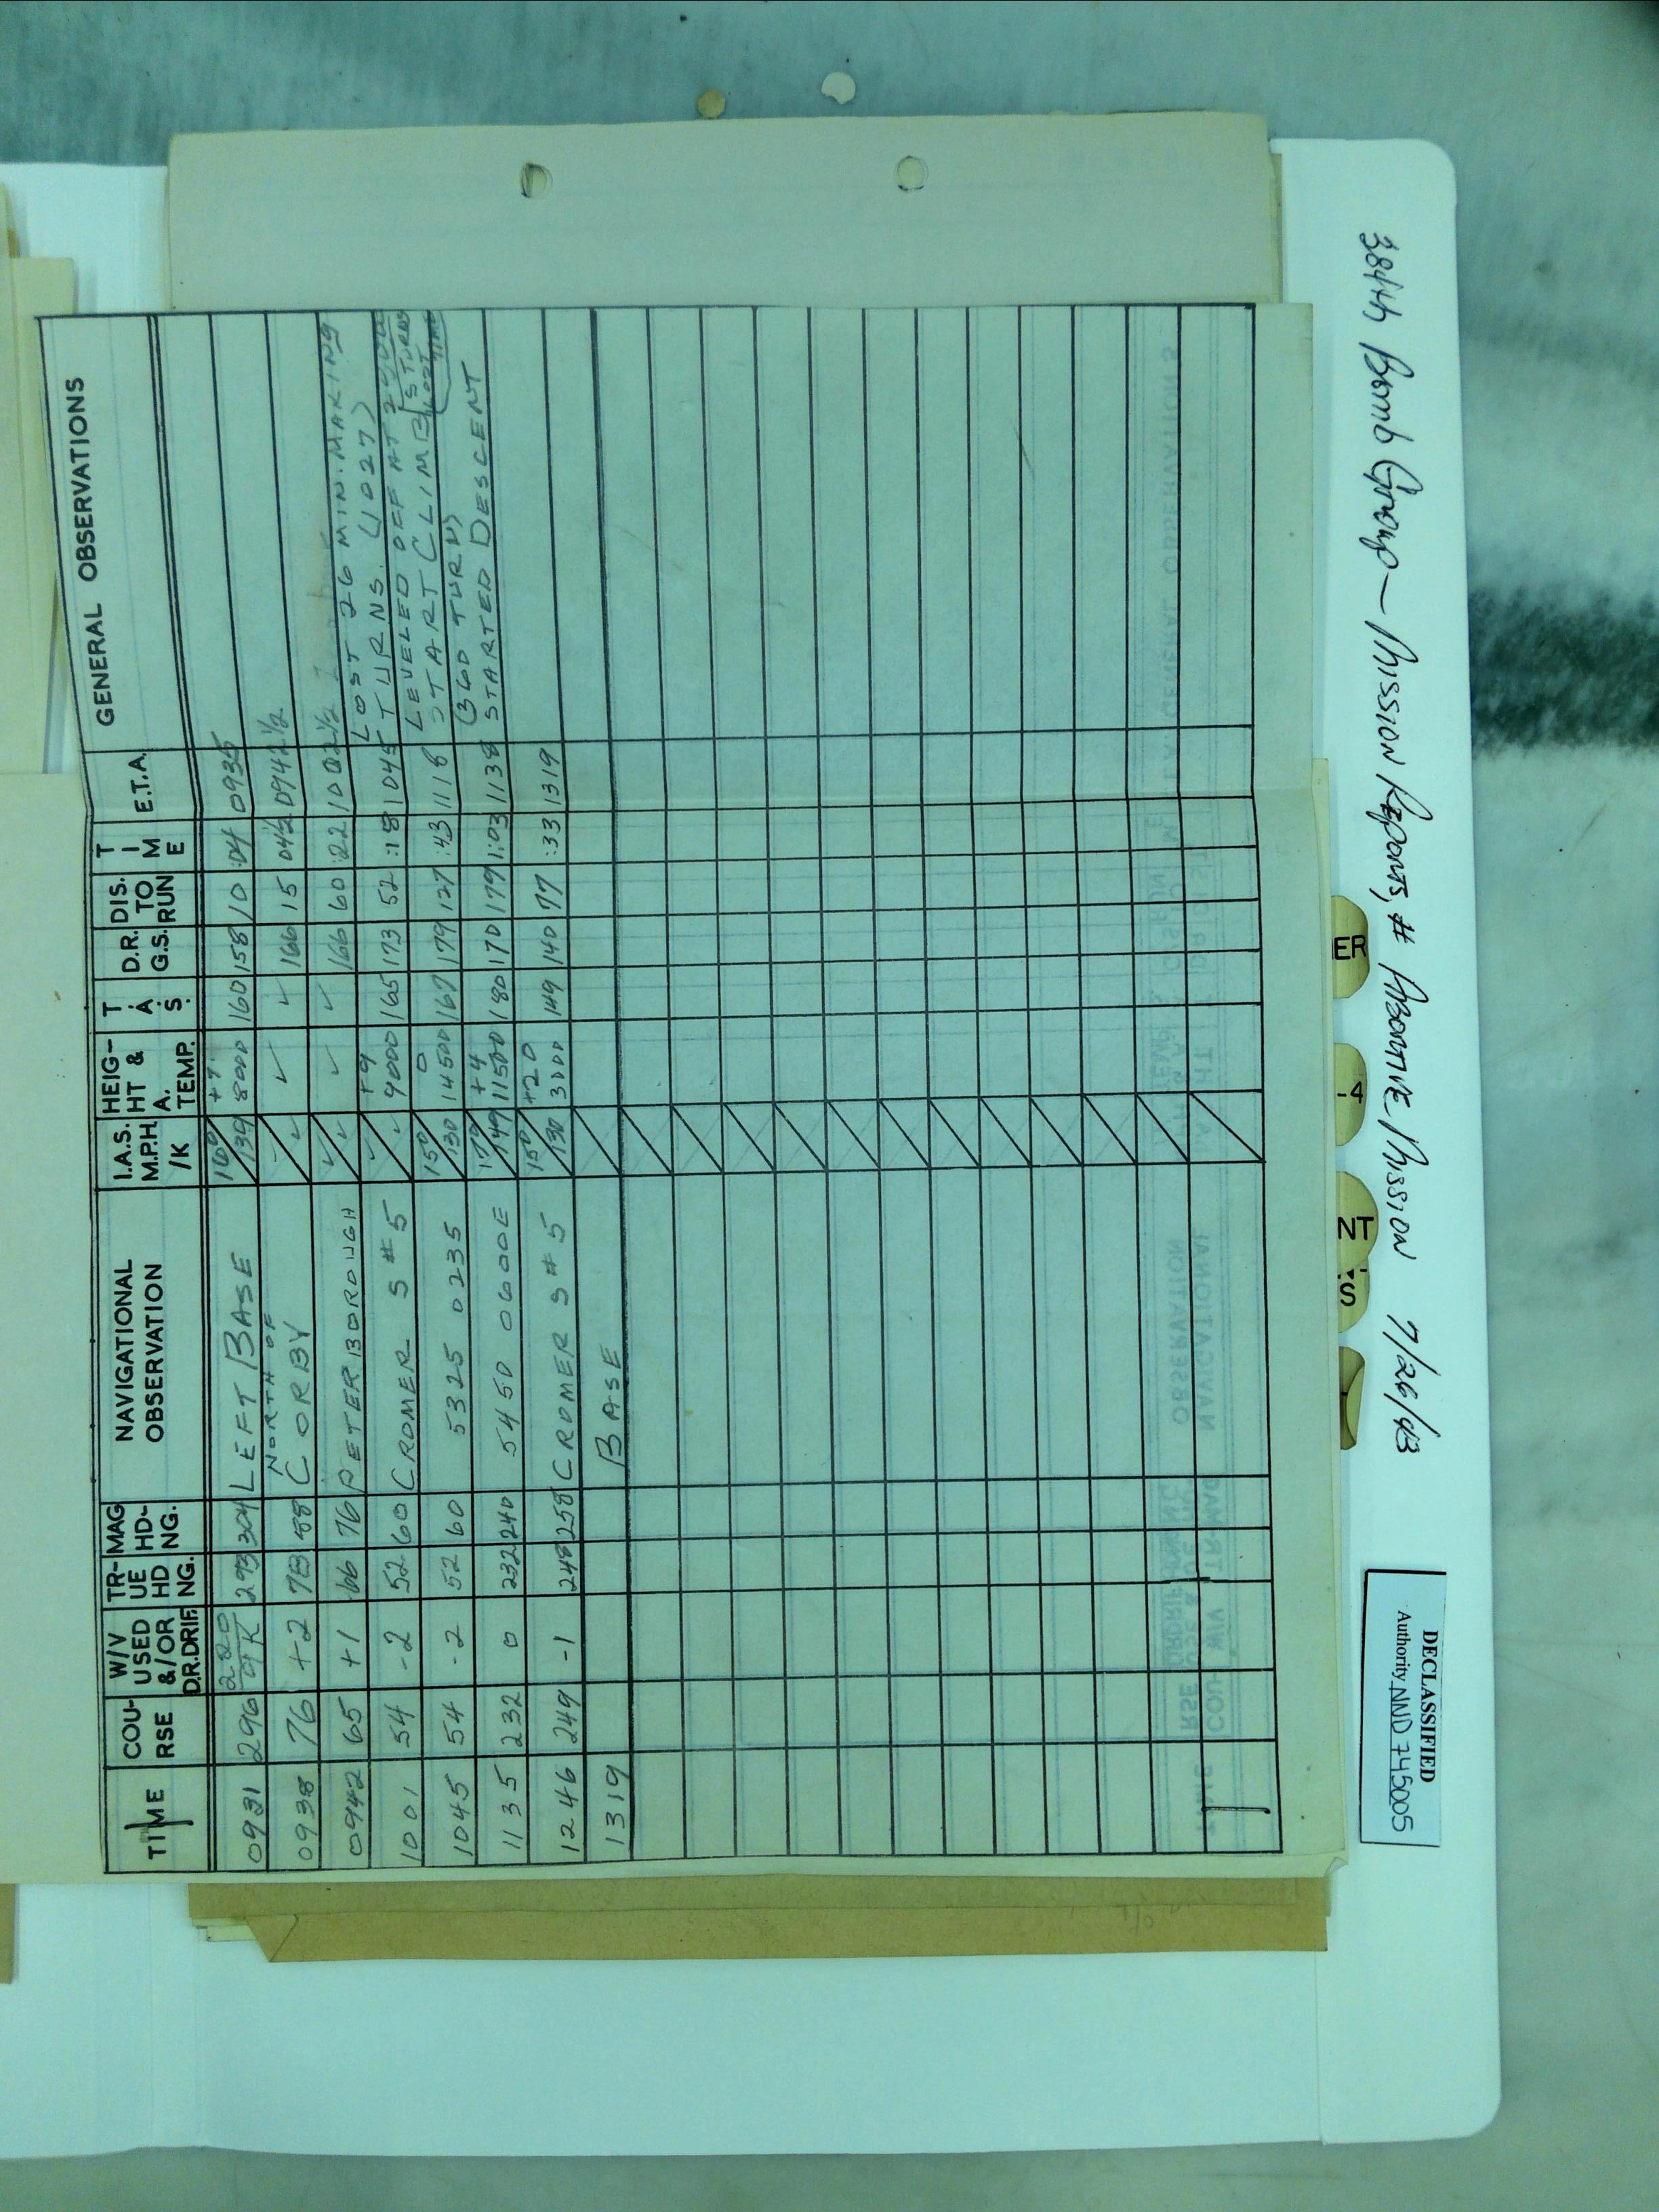 TIME COU-RSE W/V USED &/OR D.R.DRIF. TR-UE HD NG. MAG HD-NG. NAVIGATIONAL OBSERVATION I.A.S. M.P.H. /K HEIG-HT & A. TEMP. T A S. D.R. G.S. DIS. TO RUN TIME E.T.A. GENERAL OBSERVATIONS
0931 296 220/9K 293 304 LEFT BASE 160/139 +9 8000 160 158 10 :04 0935
0938 76 +2 78 88 NORTH OF CORBY ✓ ✓ ✓ 166 15 04½ 0942½
0942 65 +1 66 76 PETERBOROUGH ✓ ✓ ✓ 166 60 :22 1002½
LOST 26 MIN. MAKING
1001 54 -2 52 60 CROMER S#5 ✓ +9 9000 165 173 52 :18 1045 TURNS. (1027)
LEVELED OFF AT
1045 54 -2 52 60 5325 0235 150/130 0 14500 167 179 127 :43 1116 START CLIMB S TURNS LOST TIME
(360 TURN)
1135 232 0 232 240 5450 0600E 170/149 +4 11500 180 170 179 1:03 1138 STARTED DESCENT
1246 249 -1 248 258 CROMER S#5 150/130 +20 3000 149 140 77 :33 1319
1319 BASE
384th Bomb Group — Mission Reports, # Abortive Mission 7/26/43
ER
-4
NT
S
DECLASSIFIED
Authority NND 745005